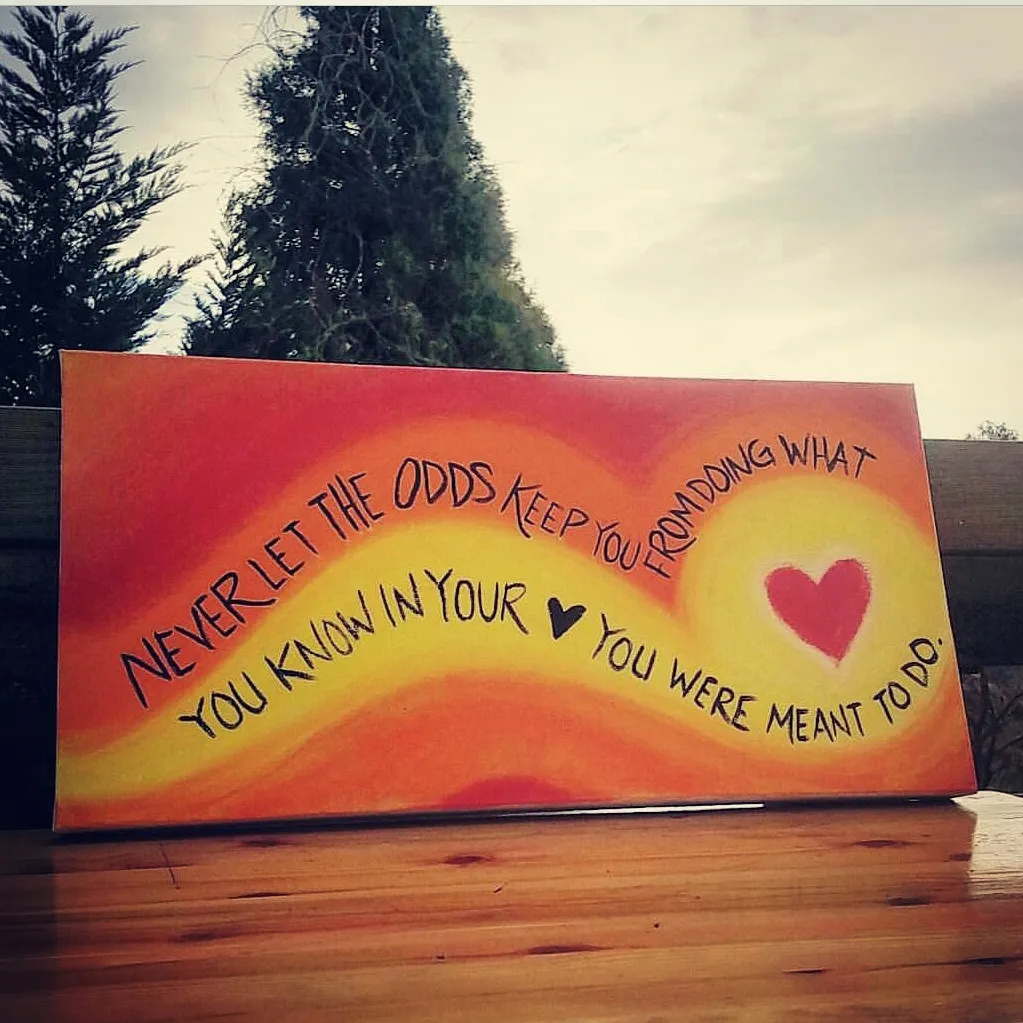 NEVER LET THE ODDS KEEP YOU FROM DOING WHAT
YOU KNOW IN YOUR ♥ YOU WERE MEANT TO DO.